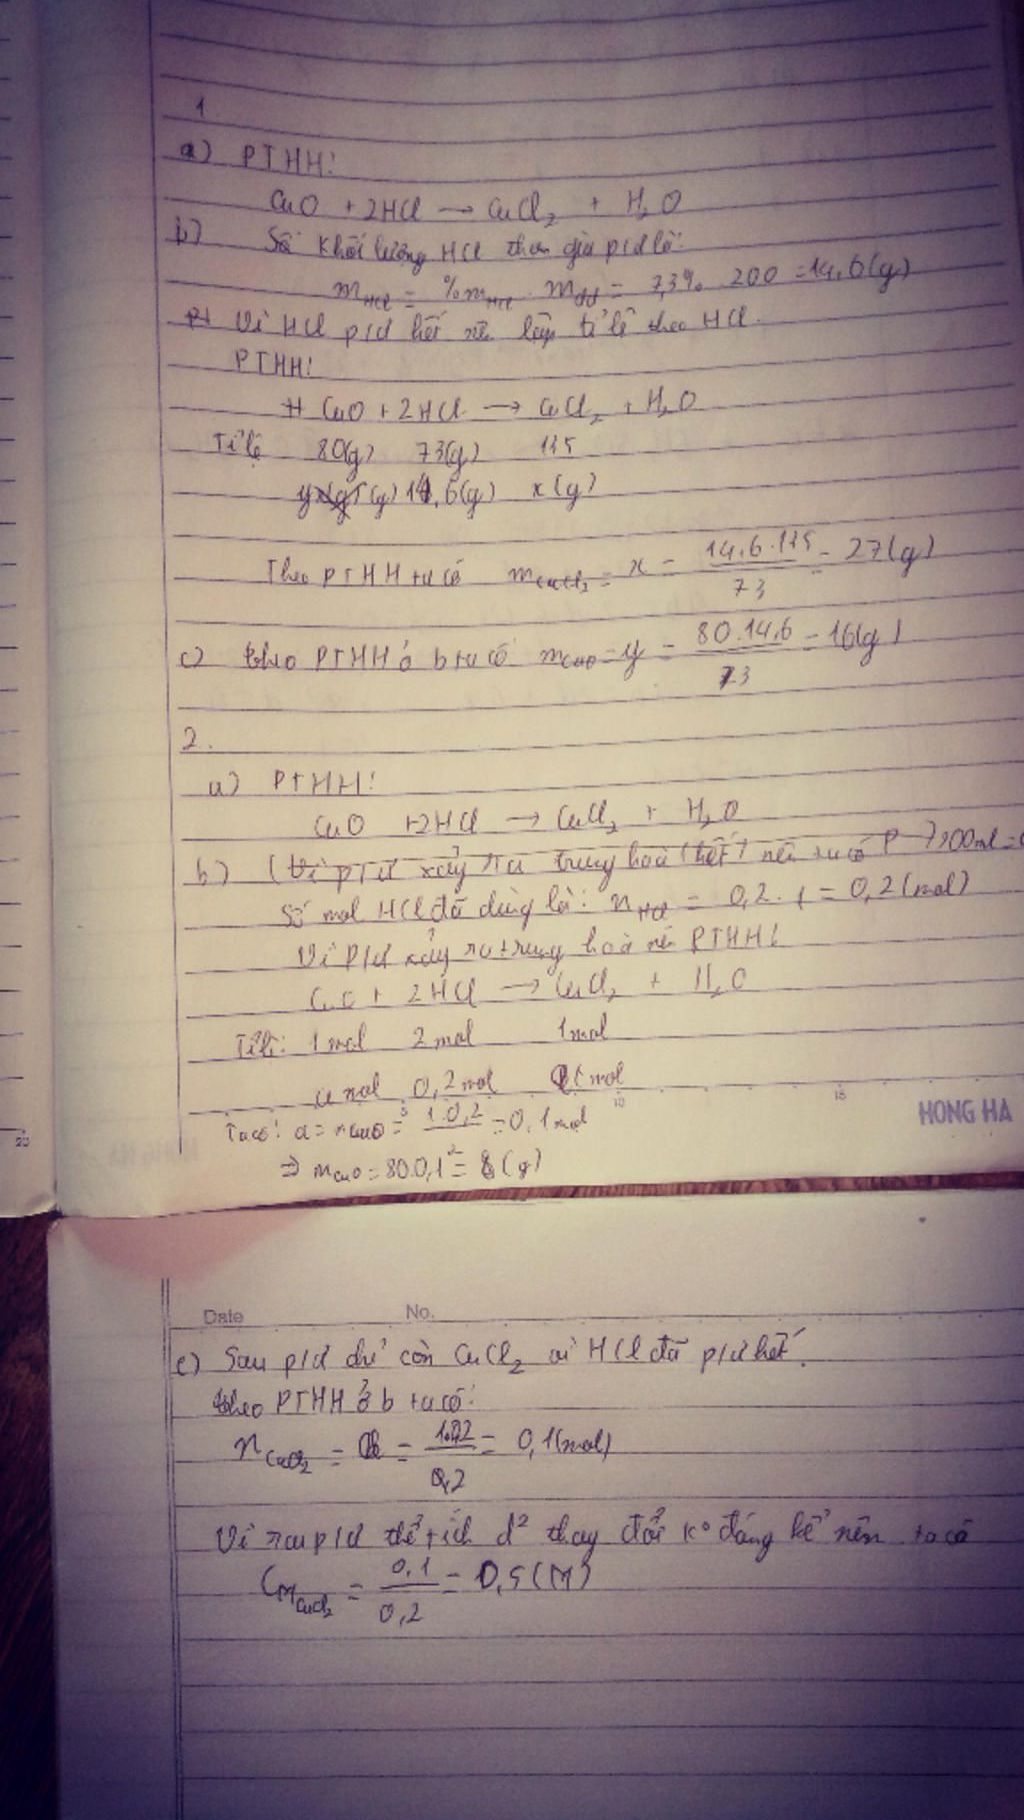 1
a) PTHH:
CuO + 2HCl → CuCl₂ + H₂O
b) Số khối lượng HCl tham gia p/ứ là:
mHCl = %mHCl . mdd = 7,3% . 200 = 14,6(g)
Vì HCl p/ứ hết nên lập tỉ lệ theo HCl.
PTHH:
CuO + 2HCl → CuCl₂ + H₂O
Tỉ lệ 80(g) 73(g) 135
y (g) 14,6(g) x (g)
Theo PTHH ta có mCuCl₂ = x = 14,6.135 / 73 = 27(g)
c) theo PTHH ở b ta có mCuO = y = 80.14,6 / 73 = 16(g)
2.
a) PTHH:
CuO + 2HCl → CuCl₂ + H₂O
b) (Vì p/ứ xảy ra trung hoà (hết) nên ta có
Số mol HCl đã dùng là: nHCl = 0,2 . 1 = 0,2 (mol)
Vì p/ứ xảy ra trung hoà nên PTHH:
CuO + 2HCl → CuCl₂ + H₂O
Tỉ lệ: 1 mol 2 mol 1 mol
a mol 0,2 mol mol
5 10 15
HONG HA
Ta có: a = nCuO = 1.0,2 / 2 = 0,1 mol
20
⇒ mCuO = 80.0,1 = 8 (g)
Date No.
c) Sau p/ứ chỉ còn CuCl₂ vì HCl đã p/ứ hết.
theo PTHH ở b ta có:
nCuCl₂ = = 1.0,2 / 0,2 = 0,1(mol)
Vì sau p/ứ thể tích d² thay đổi kº đáng kể nên ta có
CMCuCl₂ = 0,1 / 0,2 = 0,5 (M)